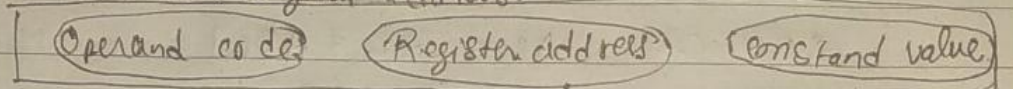 Operand codes Register address Constand value